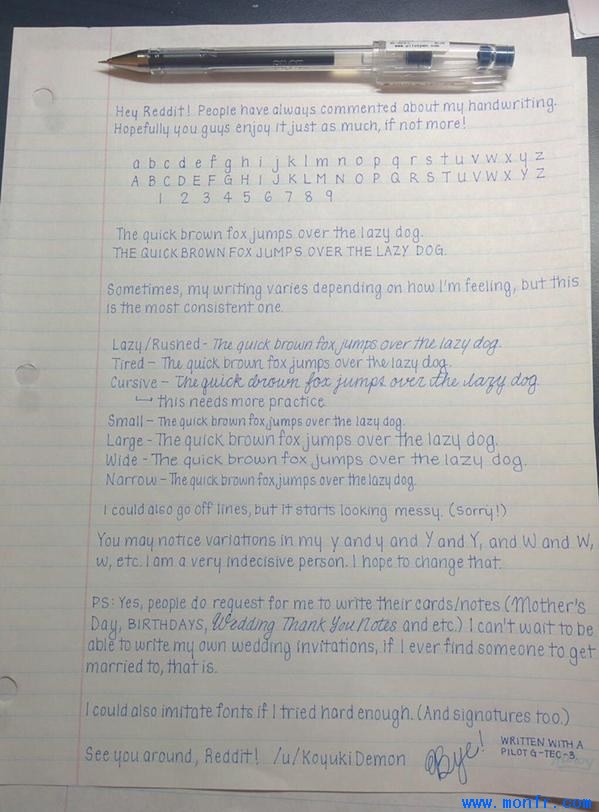 www.pilotpen.com
PILOT
Hey Reddit! People have always commented about my handwriting.
Hopefully you guys enjoy it just as much, if not more!
a b c d e f g h i j k l m n o p q r s t u v w x y z
A B C D E F G H I J K L M N O P Q R S T U V W X Y Z
1 2 3 4 5 6 7 8 9
The quick brown fox jumps over the lazy dog.
THE QUICK BROWN FOX JUMPS OVER THE LAZY DOG.
Sometimes, my writing varies depending on how I'm feeling, but this
is the most consistent one.
Lazy/Rushed - The quick brown fox jumps over the lazy dog.
Tired - The quick brown fox jumps over the lazy dog.
Cursive - The quick brown fox jumps over the lazy dog
↳ this needs more practice
Small - The quick brown fox jumps over the lazy dog.
Large - The quick brown fox jumps over the lazy dog.
Wide - The quick brown fox jumps over the lazy dog.
Narrow - The quick brown fox jumps over the lazy dog.
I could also go off lines, but it starts looking messy. (Sorry!)
You may notice variations in my y and y and Y and Y, and W and W,
w, etc. I am a very indecisive person. I hope to change that.
PS: Yes, people do request for me to write their cards/notes (Mother's
Day, BIRTHDAYS, Wedding Thank You Notes and etc.) I can't wait to be
able to write my own wedding invitations, if I ever find someone to get
married to, that is.
I could also imitate fonts if I tried hard enough. (And signatures too.)
See you around, Reddit! /u/Koyuki Demon
Bye!
WRITTEN WITH A
PILOT G-TEC-3.
www.monfr.com